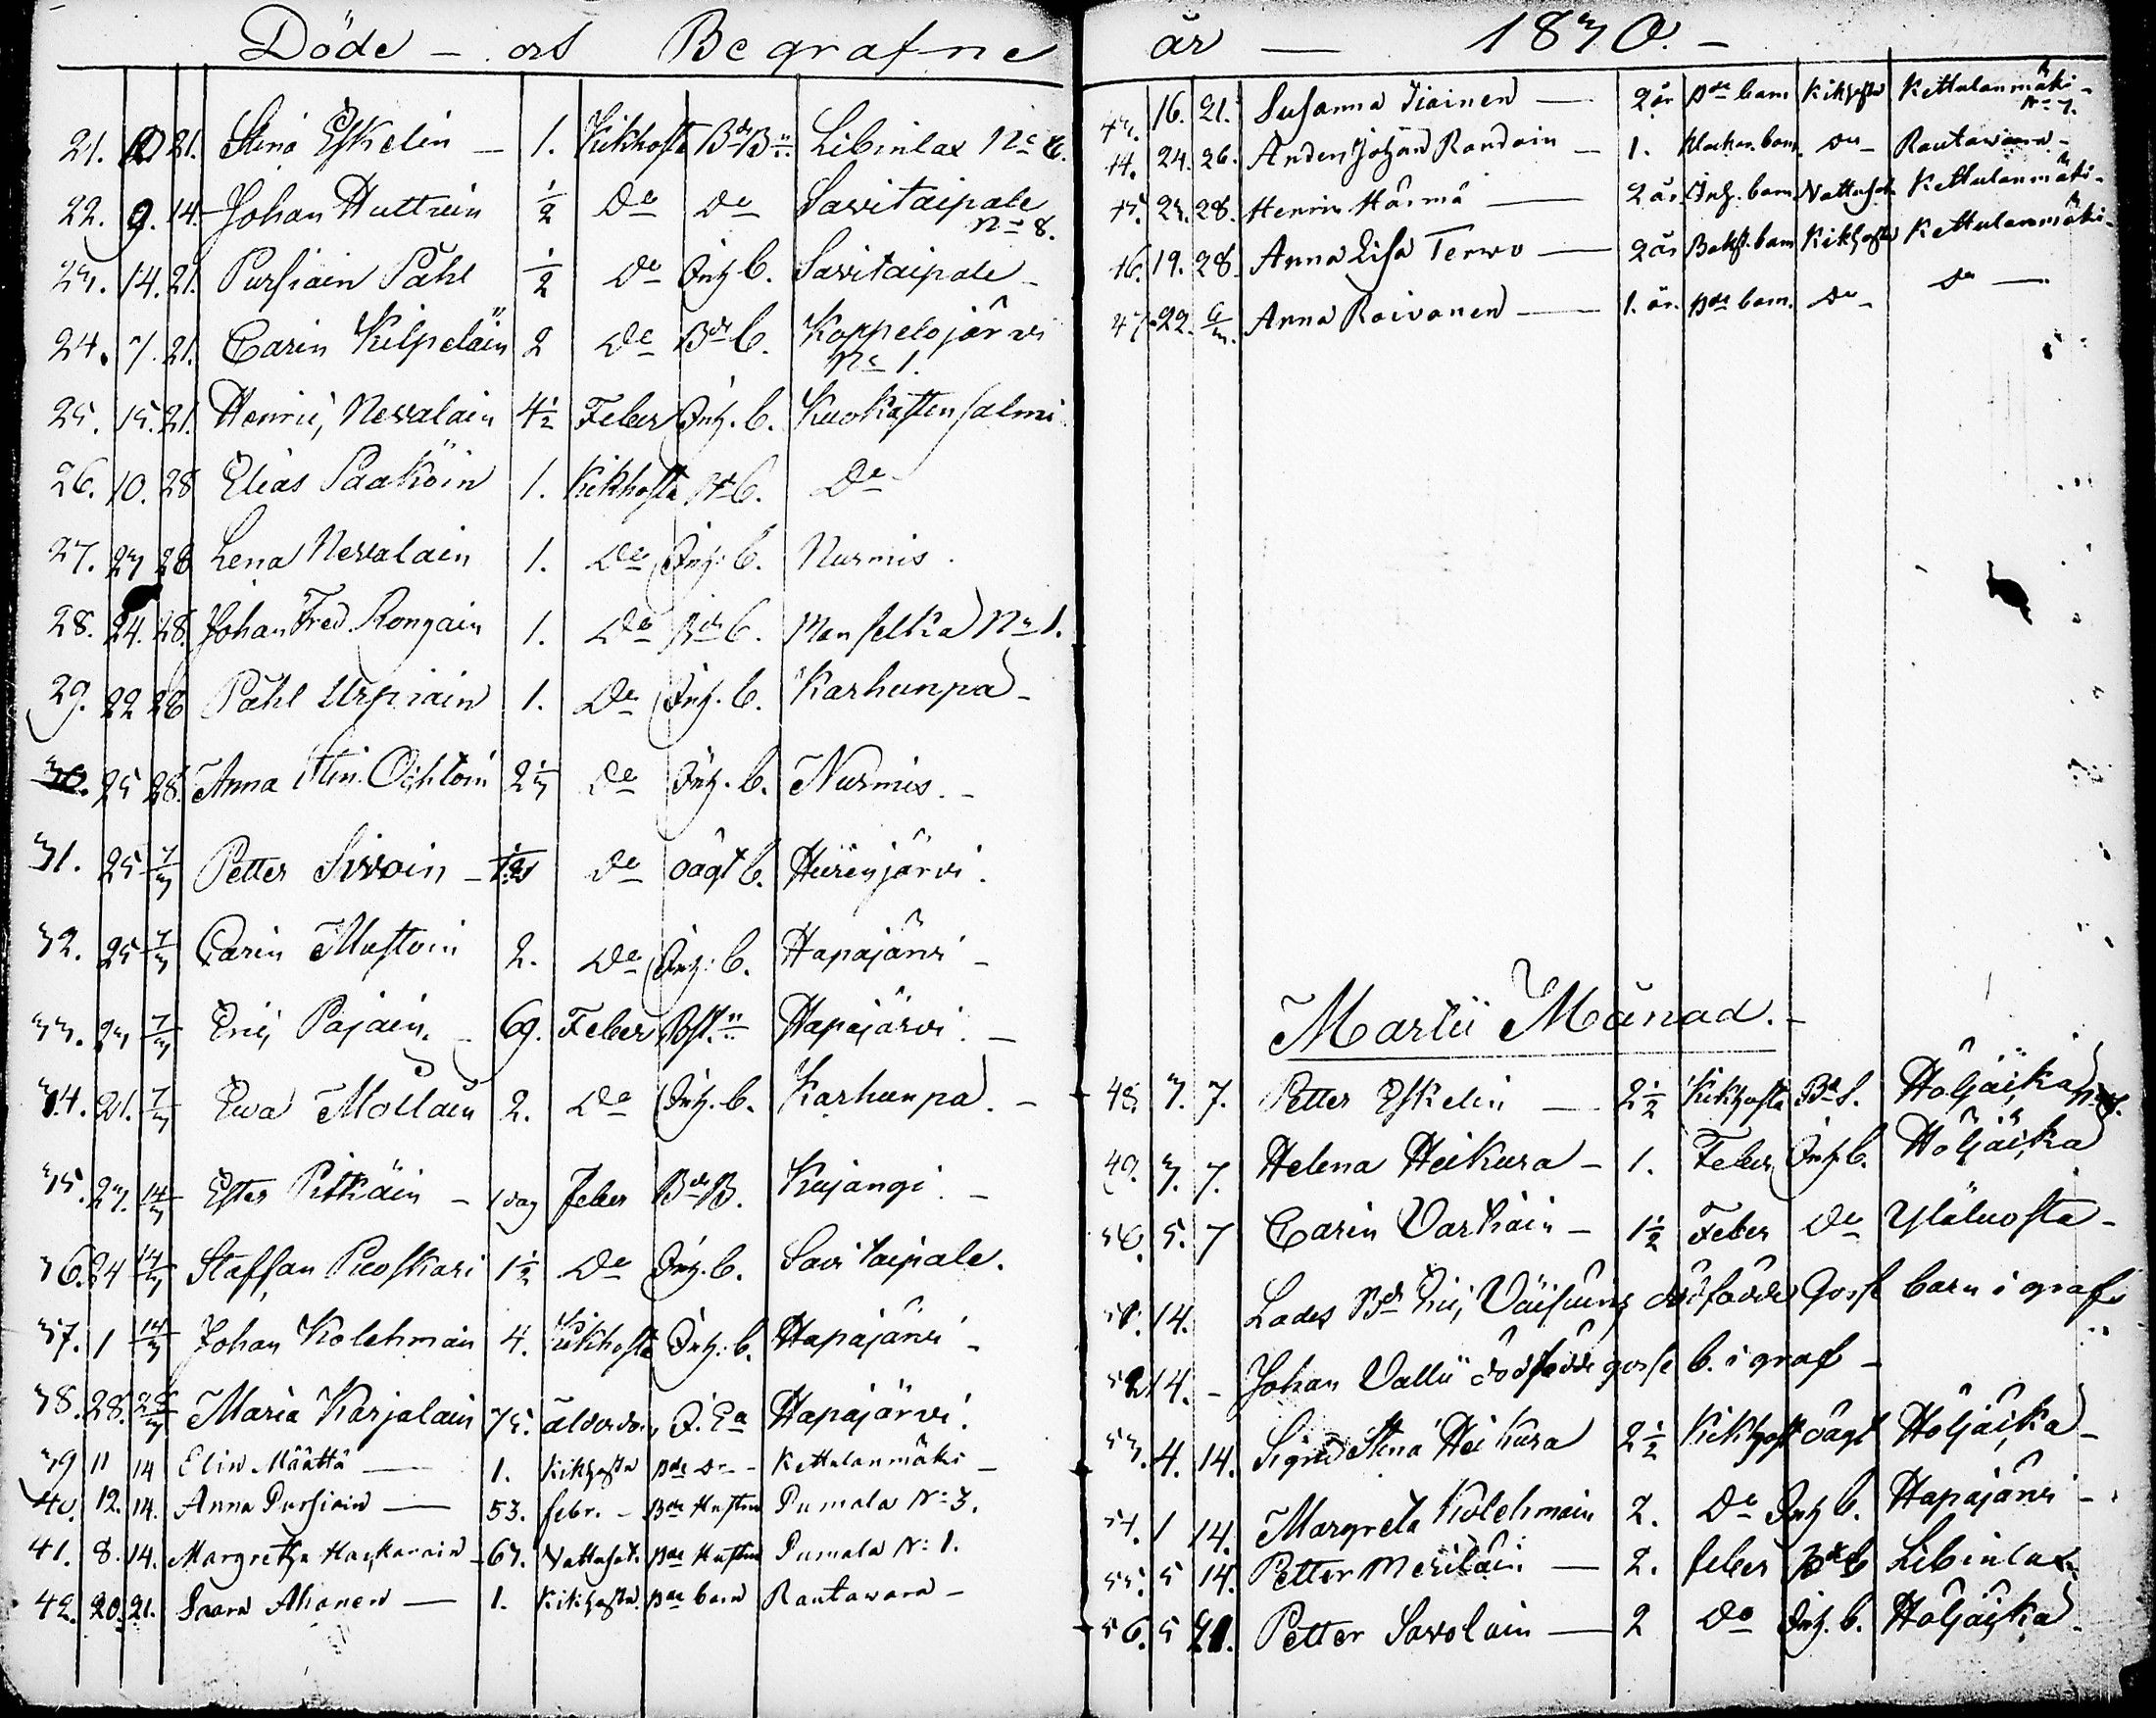 Döde - och Begrafne
21. 12 21. Stina Eskelin - 1. Kikhosta Bdr Bn Libinlax No 6.
22. 9. 14 Johan Huttuin 1/2 Do Do Savitaipale No 8.
23. 14. 21. Pursiain Påhl 1/2 Do Inh b. Savitaipale -
24. 7. 21. Carin Kilpeläin 2 Do Bdr b. Koppelojärvi No 1.
25. 15. 21. Henric Nevalain 4 1/2 Feber Inh. b. Kuokastensalmi
26. 10. 28 Elias Paaköin 1. Kikhosta Bdr b. Do
27. 23 28 Lena Nevalain 1. Do Inh. b. Nurmis.
28. 24. 28. Johan Fred. Rongain 1. Do Bdr b. Manselka No 1.
29. 22 28 Påhl Urpiain 1. Do Inh. b. Karhunpä -
30. 25 28. Anna Stin. Ochtoin 2 1/3 Do Inh. b. Nurmis. -
31. 25 7/3 Petter Sivoin - 1 1/2 Do Oägt b. Hiirenjärvi.
32. 25 7/3 Carin Mustoin 2. Do Inh. b. Hapajärvi -
33. 23 7/3 Eric Pajain. - 69. Feber Hapajärvi. -
34. 21. 7/3 Ewa Mölläin 2. Do Inh. b. Karhunpä. -
35. 27. 14/3 Ester Pitkäin - 1 dag feber Bdr B. Kujangi. -
36. 24 14/3 Staffan Puoskari 1 1/2 Do Inh. b. Savitaipale.
37. 1 14/3 Johan Kolehmain 4. Kikhosta Inh. b. Hapajärvi -
38. 28. 28/3 Maria Karjalain 75. ålderdom I. Ea Hapajärvi.
39 11 14 Elin Määttä - 1. Kikhosta Bdr Do - Kettulanmäki -
40. 12. 14. Anna Pursiain - 53. febr. - Bdr Hustru Pumala No 3.
41. 8. 14. Margretha Hackarain - 67. Vattusot. Bdr Hustru Pumala No 1.
42. 20. 21. Saara Ahonen - 1. Kikhosta. Bdr barn Rautavara -
år - 1830. -
43. 16. 21. Susanna Tiainen - 2 år Bdr barn Kikhosta Kettulanmäki - No 7.
44. 24. 26. Anders Johan Rondain - 1. Klockar. barn Do - Rautavara -
45. 23. 28. Henric Härmä - 2 år Inh. barn Vattusot Kettulanmäki -
46. 19. 28. Anna Lisa Tervo - 2 år barn Kikhosta Kettulanmäki -
47. 22. 6/3. Anna Roivonen - 1. år. Bdr barn. Do - Do -
Martii Månad. -
48. 3. 7. Petter Eskelin - 2 1/2 Kikhosta Bd S. Höljäckä
49. 3. 7. Helena Heikura - 1. Feber Inh b. Höljäckä
50. 5. 7 Carin Vartiain - 1 1/2 Feber Do Ylåluosta -
51. 14. Lades Bdr Eric Väisuins dödfödde Gosse barn i graf.
52. 14. - Johan Vallii dödfödde gosse b. i graf -
53. 4. 14. Sigrid Stina Heikura 2 1/2 Kikhost oägt Höljäckä -
54. 1 14. Margreta Kolehmain 2. Do Inh b. Hapajärvi -
55. 5 14. Petter Meriläin - 2. feber Bdr b Libinlax.
56. 5 21. Petter Savolain - 2 Do Inh. b. Höljäckä.